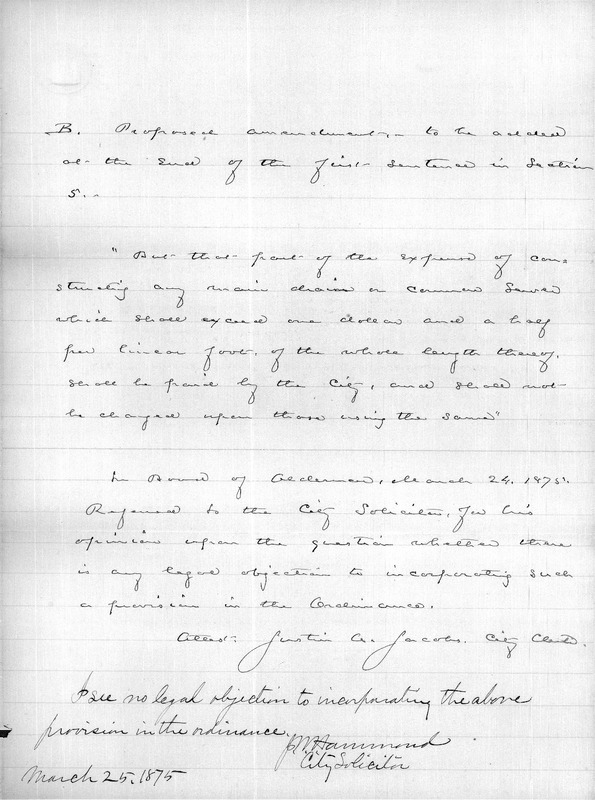 B. Proposed amendment,- to be added
at the End of the first sentence in Section
5.-
"But that part of the Expense of con=
structing any main drain or common Sewer
which shall exceed one dollar and a half
per linear foot, of the whole length thereof,
shall be paid by the City, and shall not
be charged upon those using the same"
In Board of Aldermen, March 24, 1875.
Referred to the City Solicitor, for his
opinion upon the question whether there
is any legal objection to incorporating such
a provision in the Ordinance.
Attest. Justin A. Jacobs. City Clerk.
I see no legal objection to incorporating the above
provision in the ordinance.
J.W. Hammond
City Solicitor
March 25, 1875